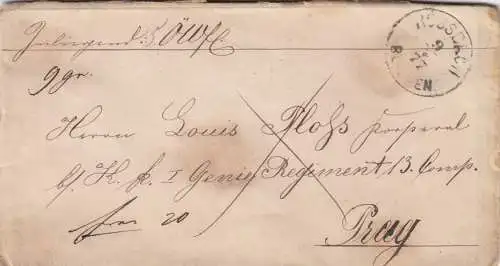 Inliegend 5 öWfl
9 gr.
Herrn Louis Ploss Korporal
bj. K. k. I Genie Regiment 13. Comp.
frco 20
Prag